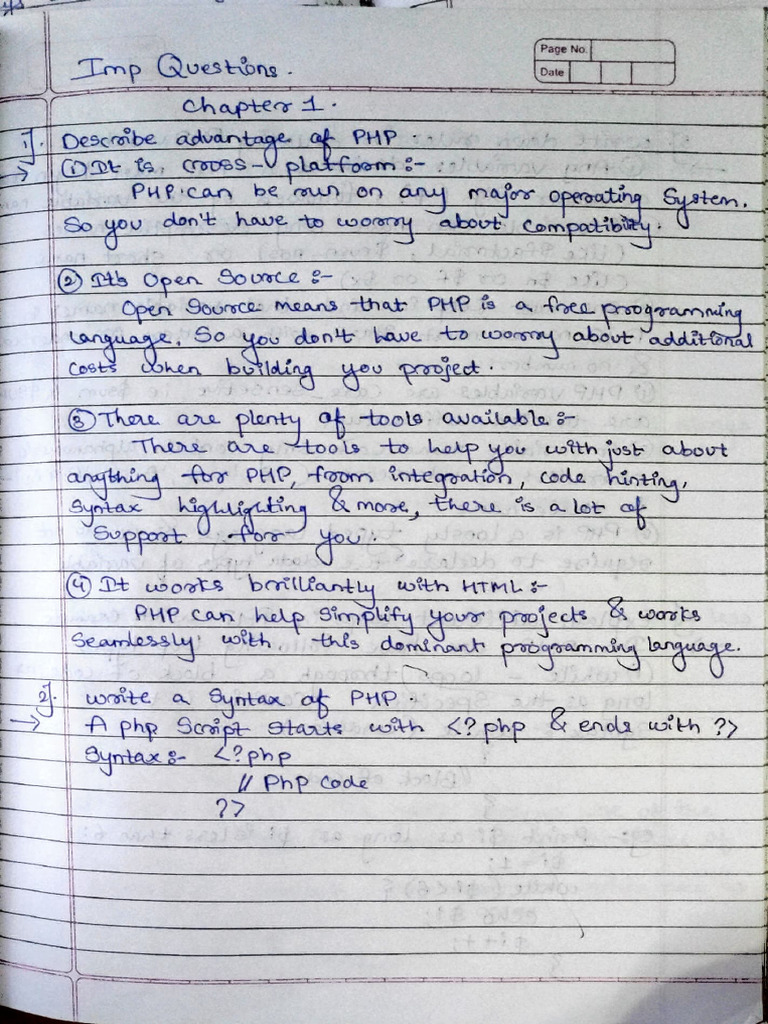 Imp Questions.
Page No.
Date
Chapter 1.
1]. Describe advantage of PHP.
→ ① It is cross-platform :-
PHP can be run on any major operating System.
So you don't have to worry about compatibility.
② Its Open Source :-
Open Source means that PHP is a free programming
language. So you don't have to worry about additional
costs when building you project.
③ There are plenty of tools available :-
There are tools to help you with just about
anything for PHP, from integration, code hinting,
Syntax highlighting & more, there is a lot of
Support for you.
④ It works brilliantly with HTML :-
PHP can help Simplify your projects & works
Seamlessly with this dominant programming language.
2]. write a Syntax of PHP
→ A php Script starts with <?php & ends with ?>
Syntax :- <?php
// Php code
?>